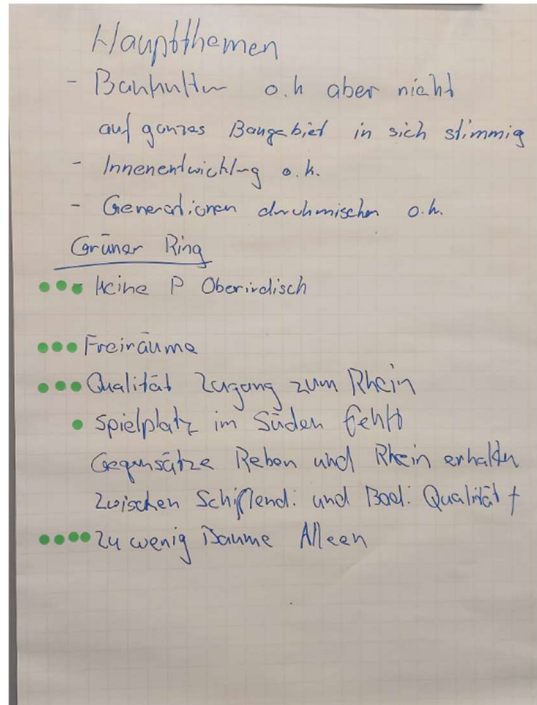 Hauptthemen
- Baukultur o.k aber nicht
auf ganzes Baugebiet in sich stimmig
- Innenentwicklung o.k.
- Generationen durchmischen o.k.
Grüner Ring
Keine P Oberirdisch
Freiräume
Qualität Zugang zum Rhein
Spielplatz im Süden fehlt
Gegensätze Reben und Rhein erhalten
Zwischen Schifflendi und Badi Qualität
Zu wenig Bäume Alleen